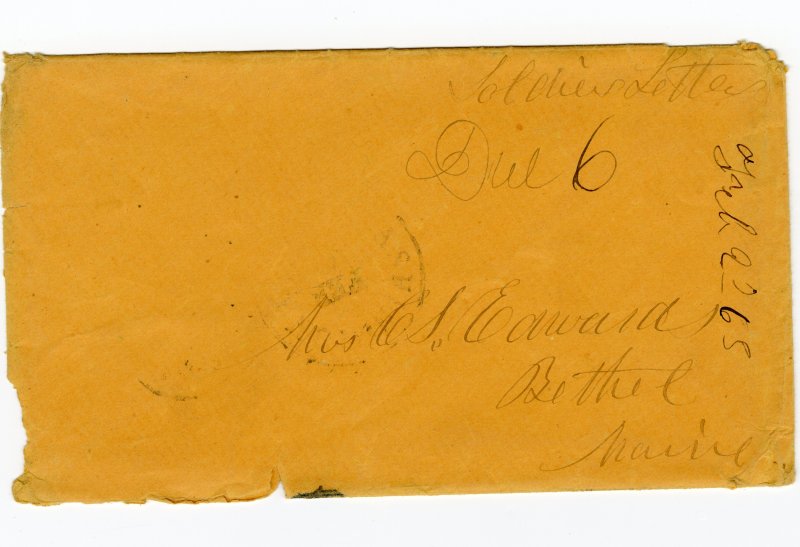 Soldiers Letter
Due 6
Mrs C S. Edwards
Bethel
Maine
Feb 2d 65